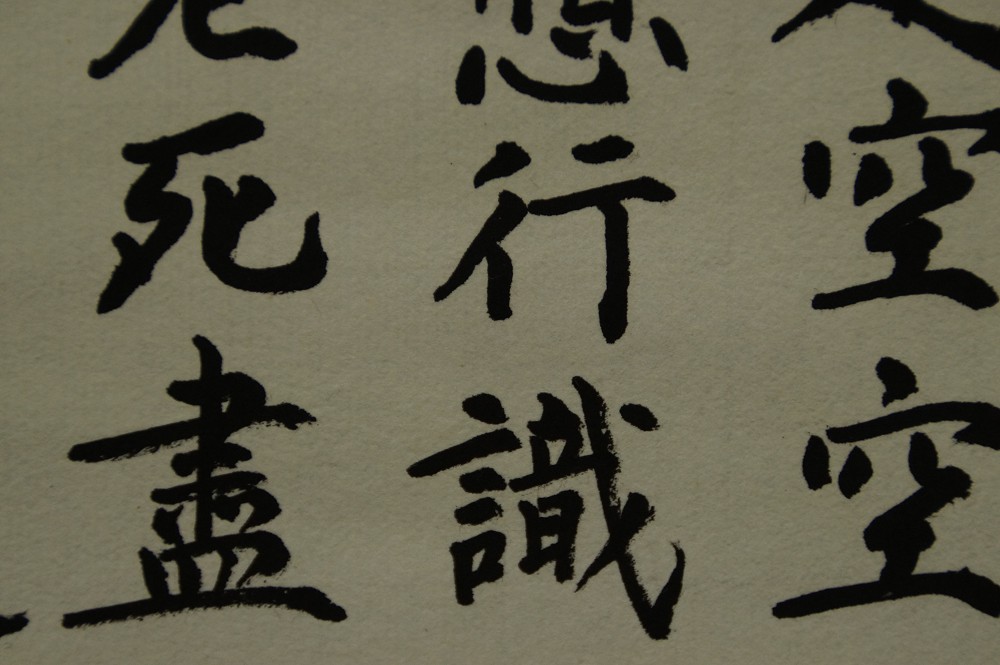 空空
想行識
老死盡